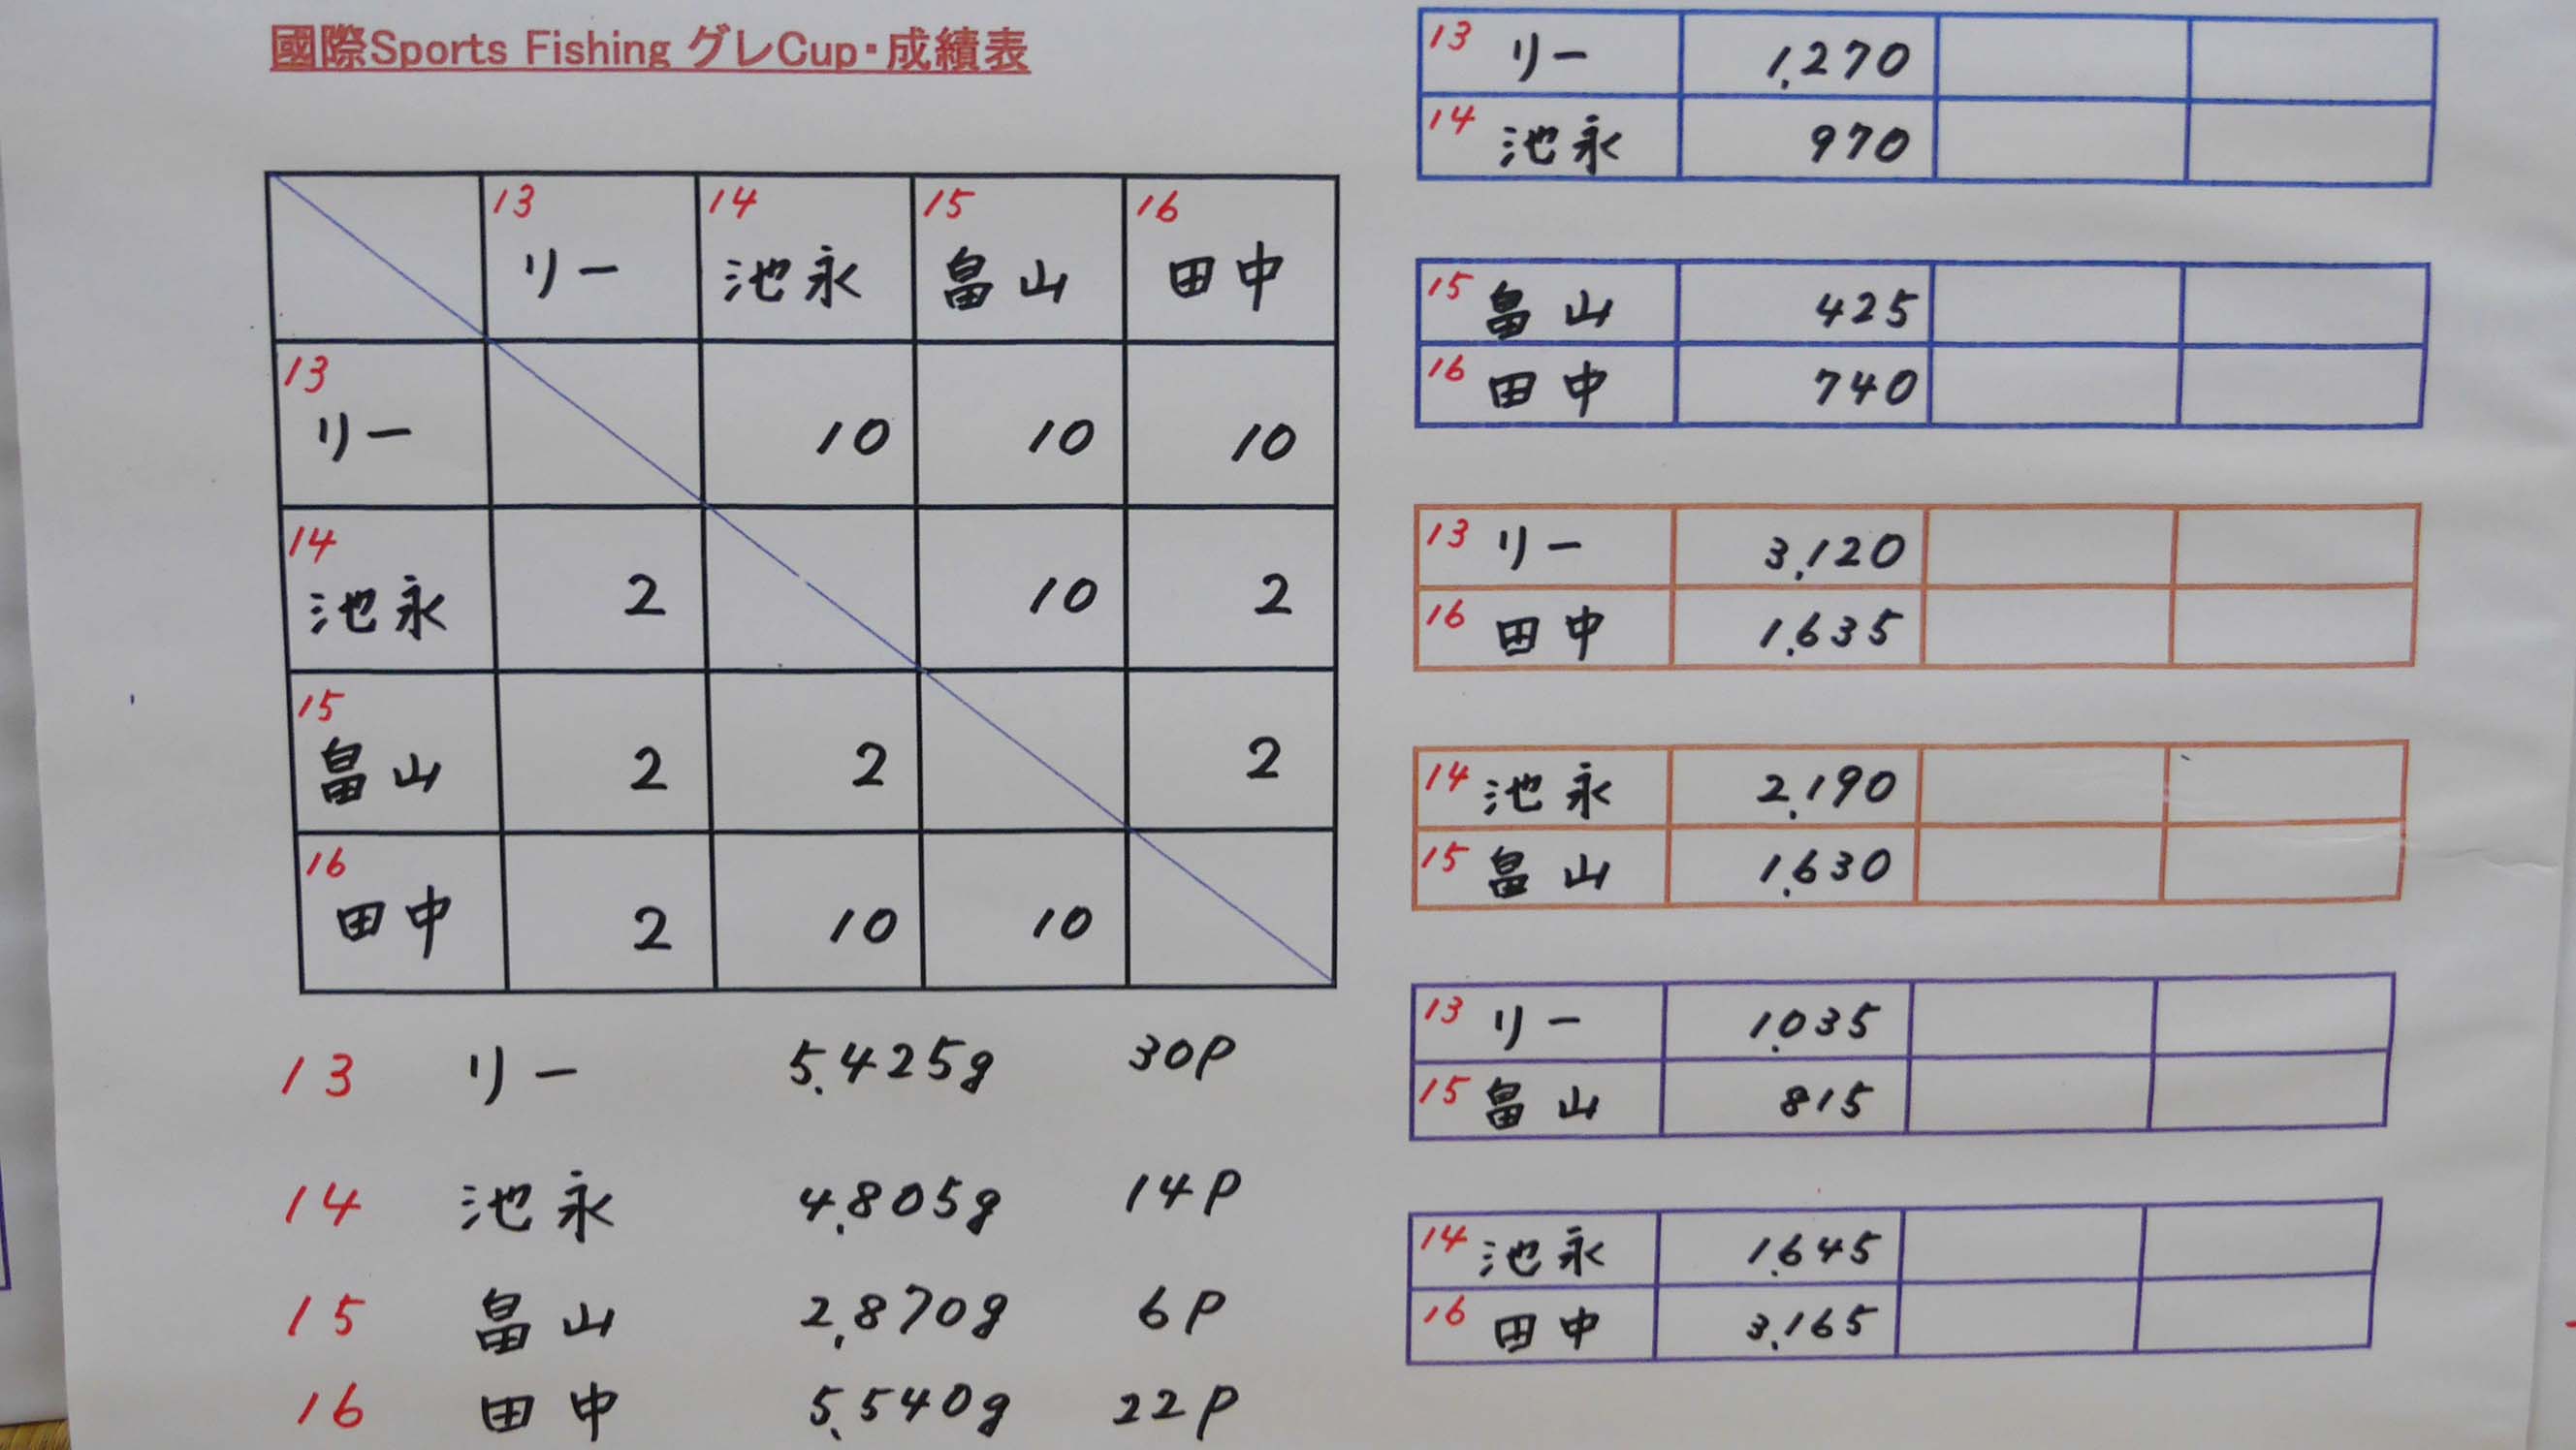 國際Sports Fishing グレCup・成績表
13 リー 14 池永 15 畠山 16 田中
13 リー 10 10 10
14 池永 2 10 2
15 畠山 2 2 2
16 田中 2 10 10
13 リー 5,425g 30P
14 池永 4,805g 14P
15 畠山 2,870g 6P
16 田中 5,540g 22P
13 リー 1,270
14 池永 970
15 畠山 425
16 田中 740
13 リー 3,120
16 田中 1,635
14 池永 2,190
15 畠山 1,630
13 リー 1,035
15 畠山 815
14 池永 1,645
16 田中 3,165